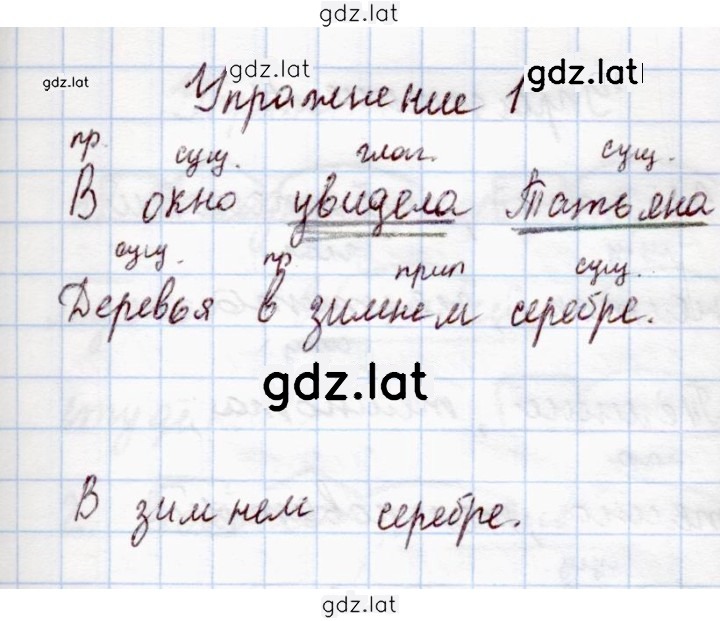 gdz.lat
gdz.lat gdz.lat gdz.lat
Упражнение 1
пр. сущ. глаг. сущ.
В окно увидела Татьяна
сущ. пр. прил сущ.
Деревья в зимнем серебре.
gdz.lat
В зимнем серебре.
gdz.lat